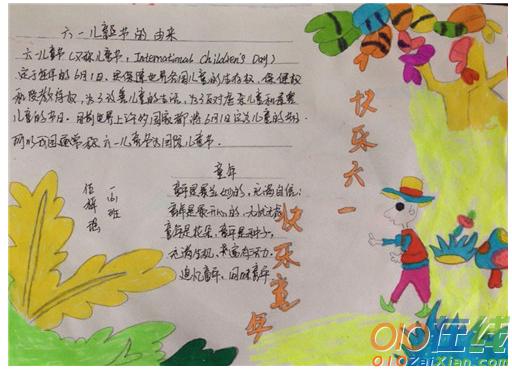 六一儿童节的由来
六一儿童节(又称儿童节, International Children's Day)
定于每年的6月1日,为保障世界各国儿童的生存权、保健权
和受教育权,为了改善儿童的生活,为了反对虐杀儿童和毒害
儿童的节日。目前世界上许多国家都将6月1日定为儿童的节日。
所以我国通常称六一儿童节为国际儿童节。
童年
童年是 的,充满自信;
童年是最开心的,无忧无虑
童年是花朵,童年是种子,
充满生机,充满活力。
追忆童年、回味童年
快乐六一
快乐童年
一 班
010在线
010ZaiXian.com